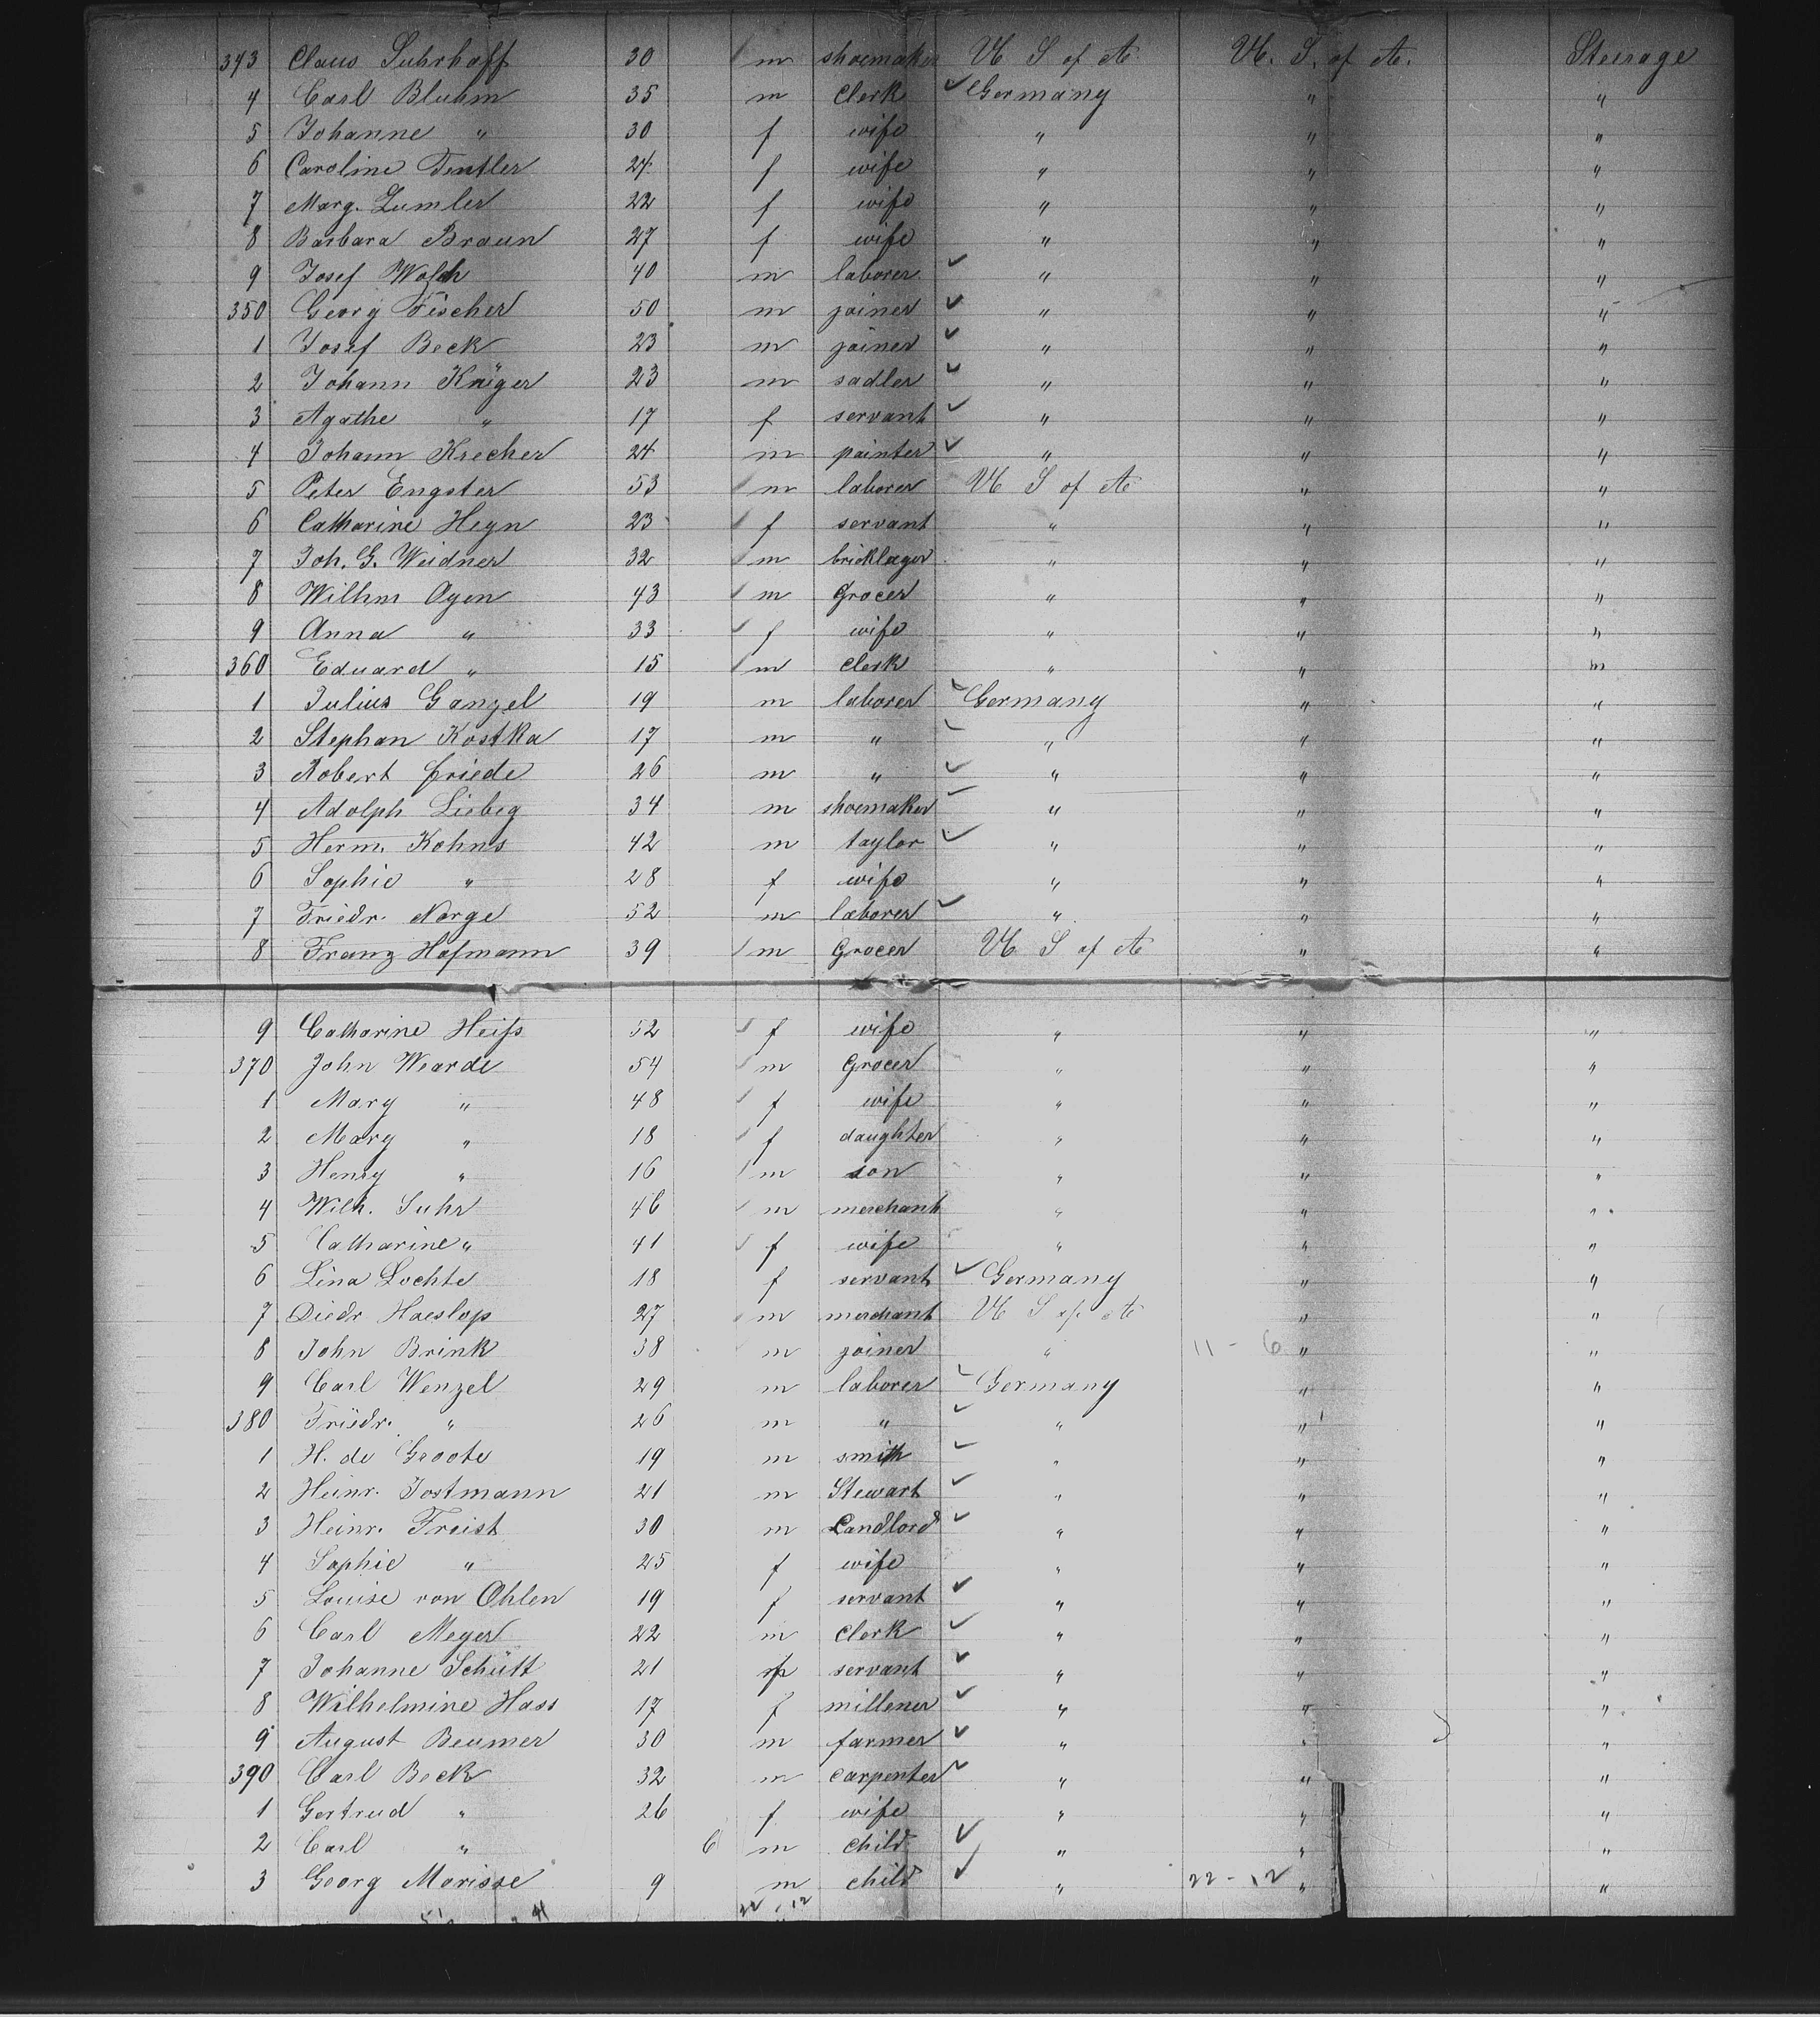 343 Claus Suhrhoff 30 m shoemaker U S of A U. S. of A. Steerage
4 Carl Bluhm 35 m Clerk Germany " "
5 Johanne " 30 f wife " " "
6 Caroline 24 f wife " " "
7 Marg. Lumler 22 f wife " " "
8 Barbara Braun 27 f wife " " "
9 Josef 40 m laborer " " "
350 Georg Fischer 50 m joiner " " "
1 Josef Beck 23 m joiner " " "
2 Johann Krüger 23 m sadler " " "
3 Agathe " 17 f servant " " "
4 Johann Krecher 24 m painter " " "
5 Peter Engster 53 m laborer U S of A " "
6 Catharine Heyn 23 f servant " " "
7 Joh. G. Weidner 32 m bricklayer " " "
8 Wilhm Ogen 43 m Grocer " " "
9 Anna " 33 f wife " " "
360 Eduard " 15 m Clerk " " "
1 Julius Ganzel 19 m laborer Germany " "
2 Stephan Kostka 17 m " " " "
3 Robert Friede 26 m " " " "
4 Adolph Liebeg 34 m shoemaker " " "
5 Herm. Kohns 42 m taylor " " "
6 Sophie " 28 f wife " " "
7 Friedr. Norge 52 m laborer " " "
8 Franz Hofmann 39 m Grocer U S of A " "
9 Catharine Heiß 52 f wife " " "
370 John Wearde 54 m Grocer " " "
1 Mary " 48 f wife " " "
2 Mary " 18 f daughter " " "
3 Henry " 16 m son " " "
4 Wilh. Suhr 46 m merchant " " "
5 Catharine " 41 f wife " " "
6 Lina Lochte 18 f servant Germany " "
7 Diedr Haeslop 27 m merchant U S of A " "
8 John Brink 38 m joiner " 11 - 6 " "
9 Carl Wenzel 29 m laborer Germany " "
380 Friedr. " 26 m " " " "
1 H. de Groote 19 m smith " " "
2 Heinr. Jostmann 21 m Stewart " " "
3 Heinr. Freist 30 m Landlord " " "
4 Sophie " 25 f wife " " "
5 Louise von Ohlen 19 f servant " " "
6 Carl Meyer 22 m Clerk " " "
7 Johanne Schütt 21 f servant " " "
8 Wilhelmine Hass 17 f millener " " "
9 August Beumer 30 m farmer " " "
390 Carl Beck 32 m Carpenter " " "
1 Gertrud " 26 f wife " " "
2 Carl " 6 m Child " " "
3 Georg Morisse 9 m Child " 22 - 12 " "
22 , 12